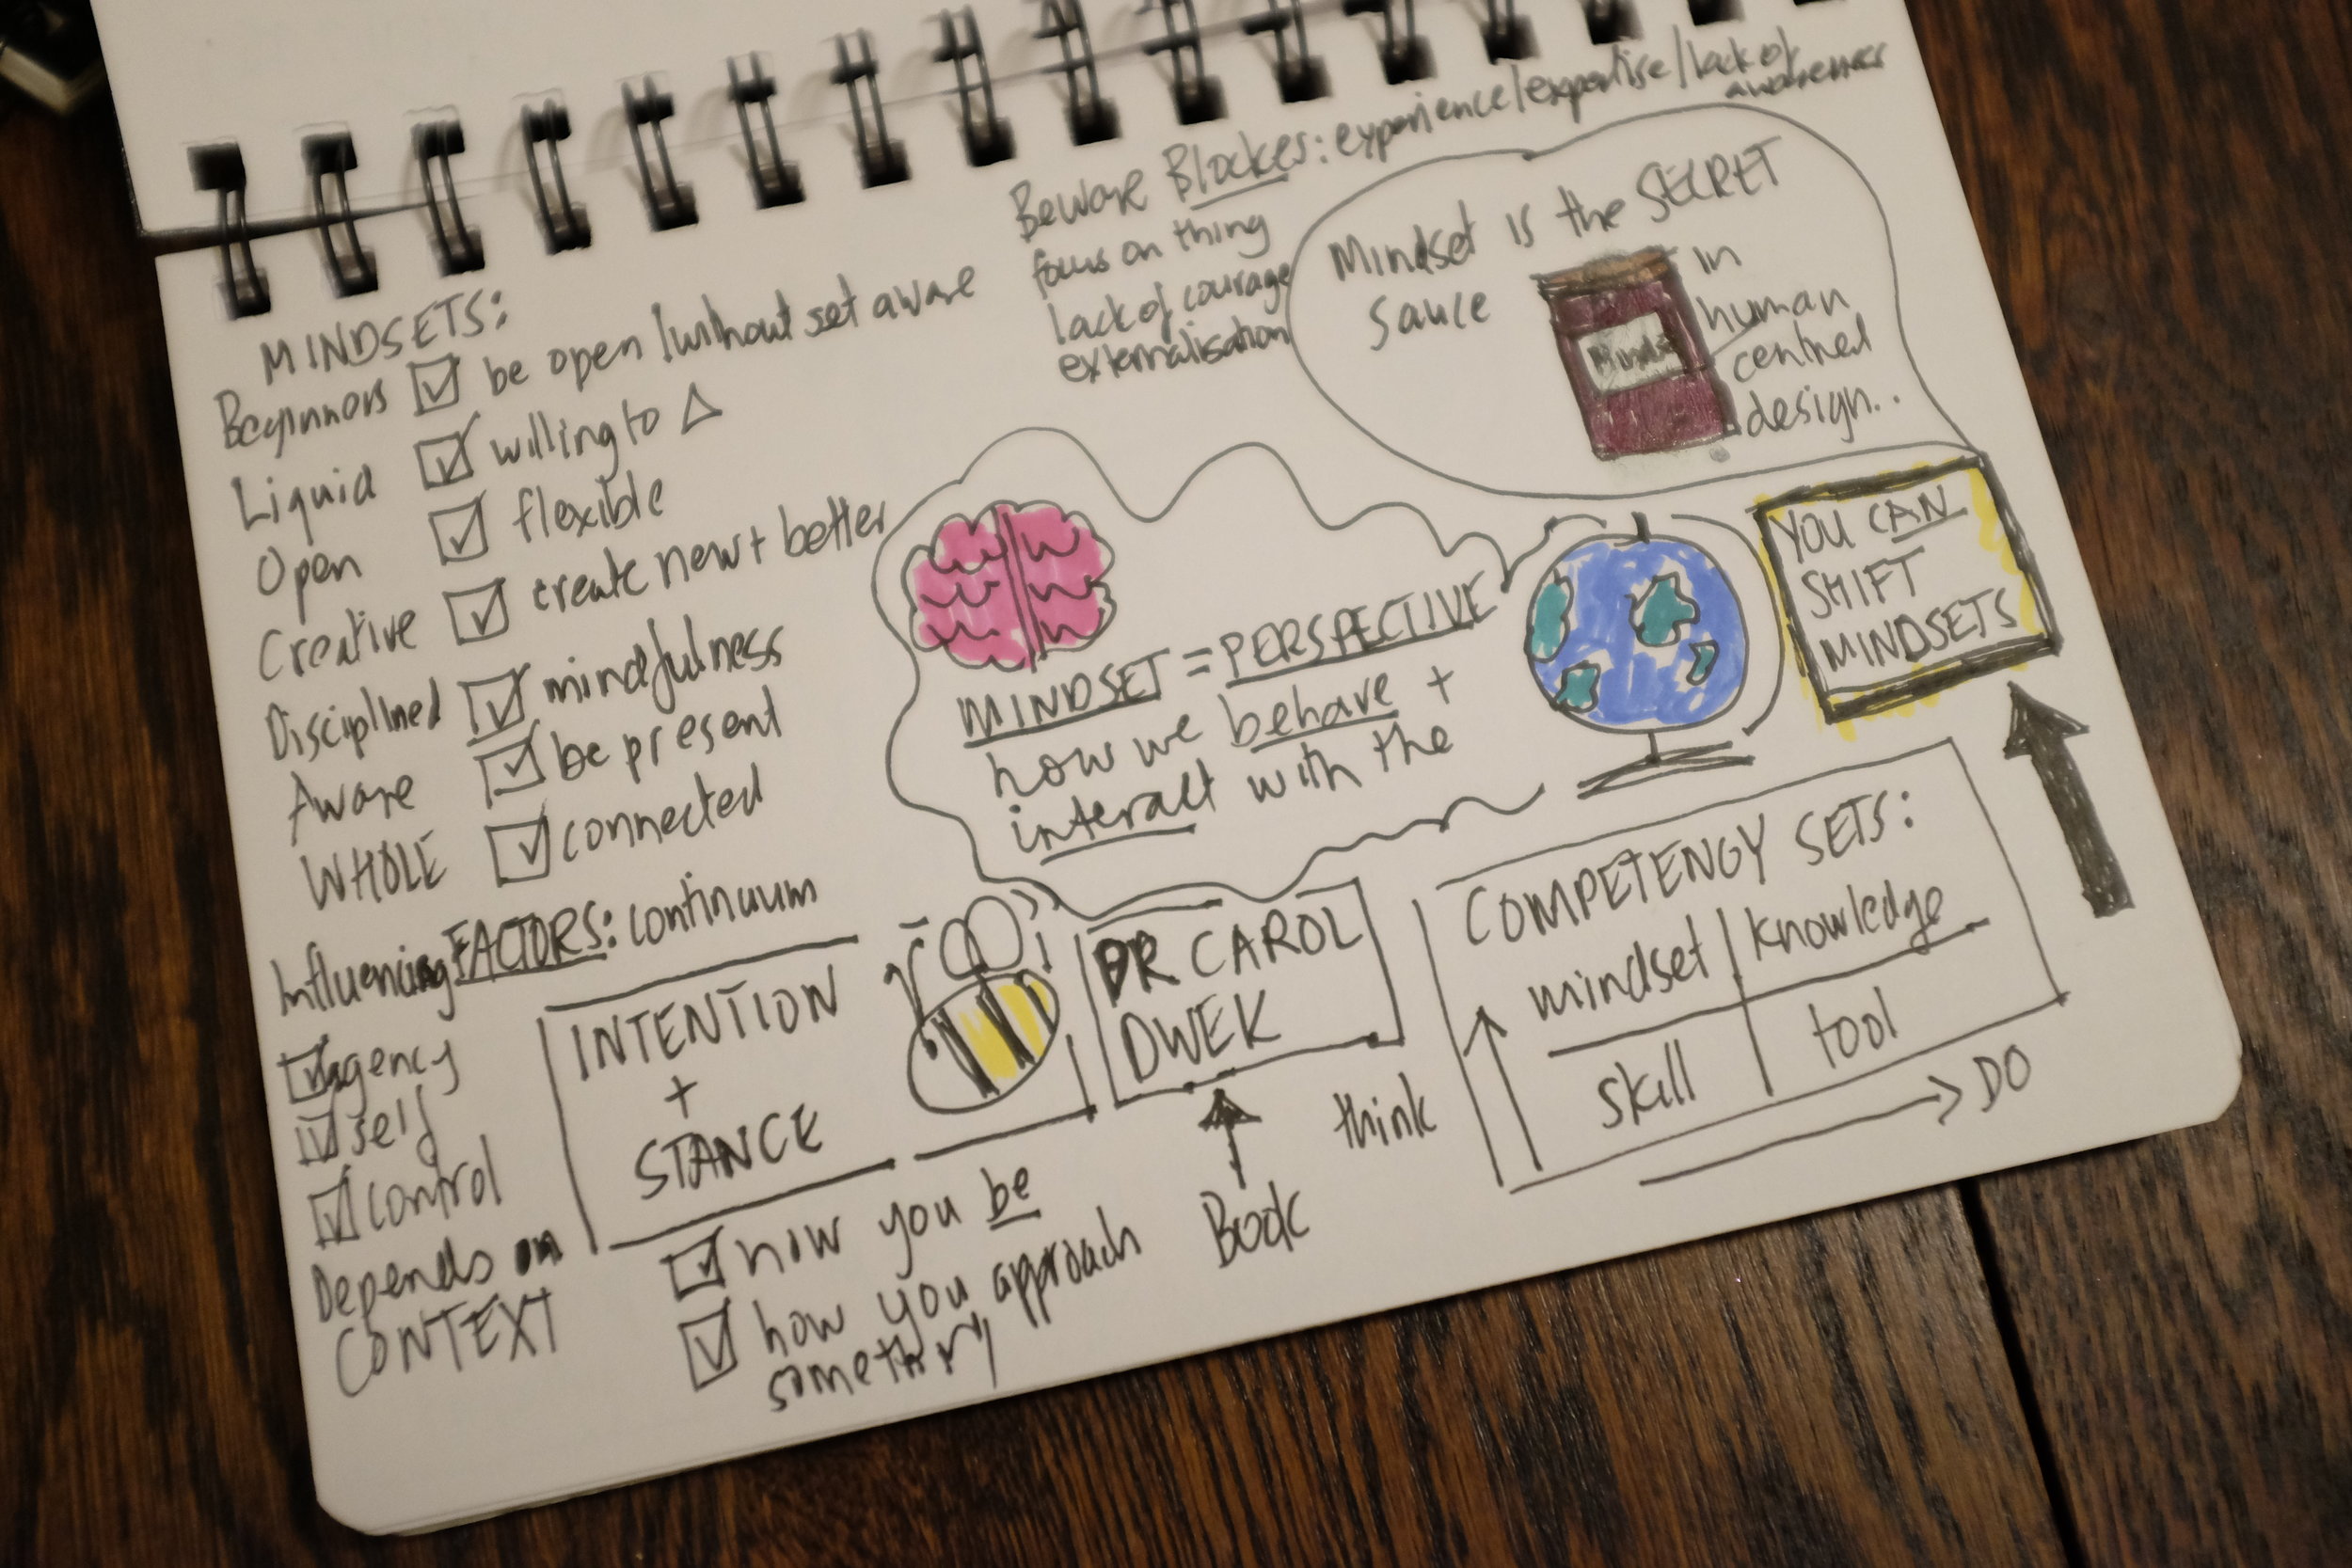 MINDSETS:
Beginners be open / without set aware
Liquid willing to Δ
Open flexible
Creative create new + better
Disciplined mindfulness
Aware be present
WHOLE connected
Influencing FACTORS: continuum
agency
self
control
Depends on
CONTEXT
INTENTION
+
STANCE
how you be
how you approach
something
Beware Blockers: experience/expertise/lack of
awareness
focus on thing
lack of courage
externalisation
Mindset is the SECRET
sauce
in
human
centred
design..
MINDSET = PERSPECTIVE
how we behave +
interact with the
YOU CAN
SHIFT
MINDSETS
DR CAROL
DWEK
Book
COMPETENCY SETS:
mindset knowledge
skill tool
think
DO